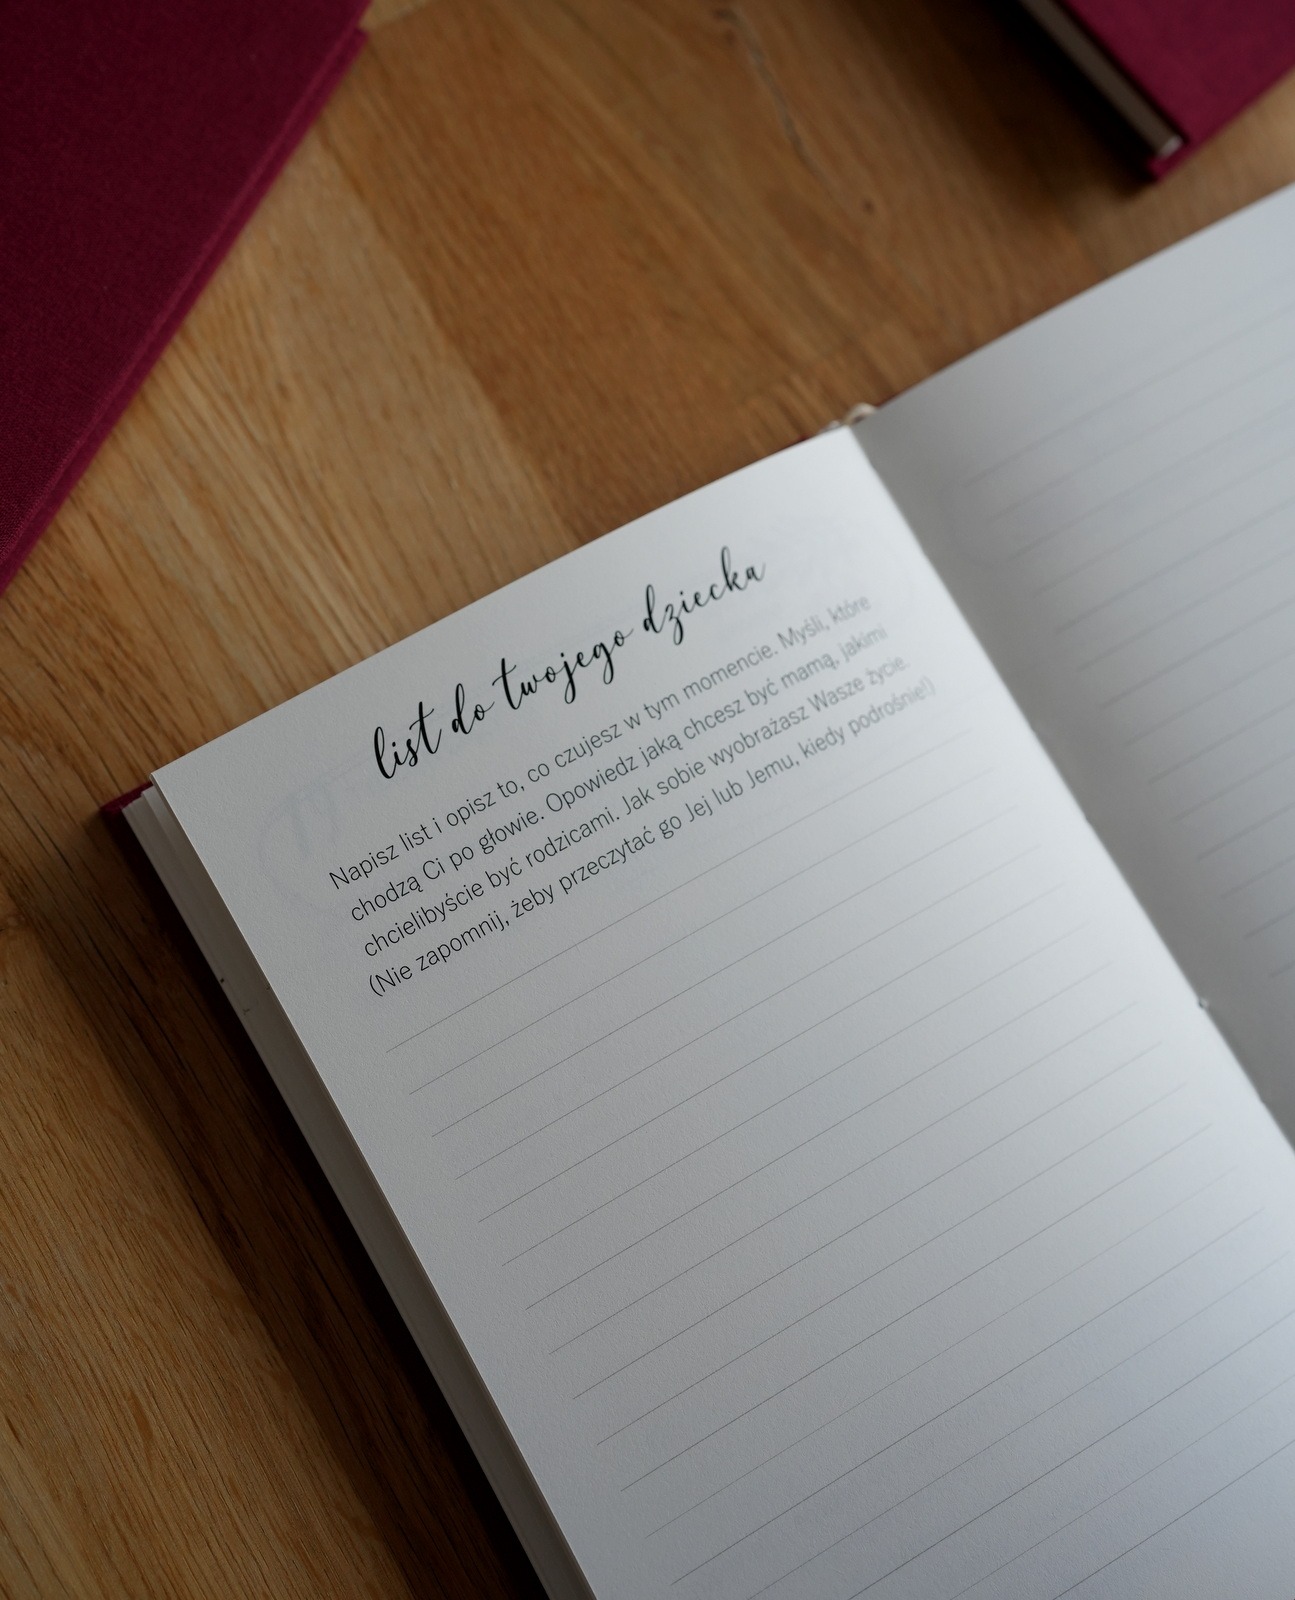 list do twojego dziecka
Napisz list i opisz to, co czujesz w tym momencie. Myśli, które
chodzą Ci po głowie. Opowiedz jaką chcesz być mamą, jakimi
chcielibyście być rodzicami. Jak sobie wyobrażasz Wasze życie.
(Nie zapomnij, żeby przeczytać go Jej lub Jemu, kiedy podrośnie!)